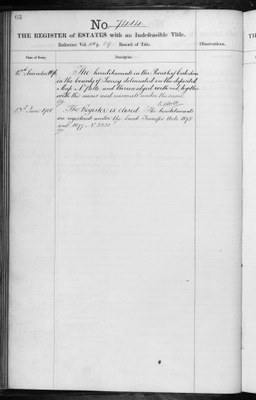 62
No 744
THE REGISTER of ESTATES with an Indefeasible Title.
Reference Vol. Record of Title.
Observations.
Date of Entry.
Description.
The hereditaments in the Parish of
in the County of Surrey delineated on the deposited
Map and thereon edged with red together
with the mines and minerals under the same
The Register is closed The hereditaments
are registered under the Land Transfer Acts 1875
and 1897